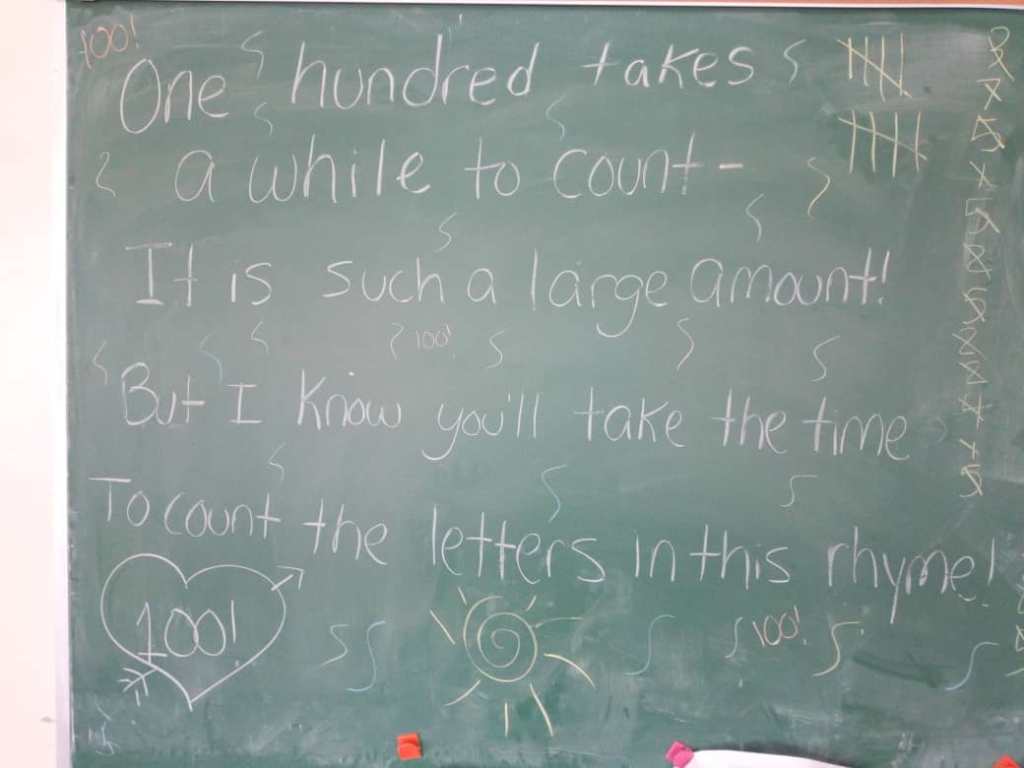 100!
One hundred takes
a while to count-
It is such a large amount!
100!
But I know you'll take the time
To count the letters in this rhyme!
100!
100!